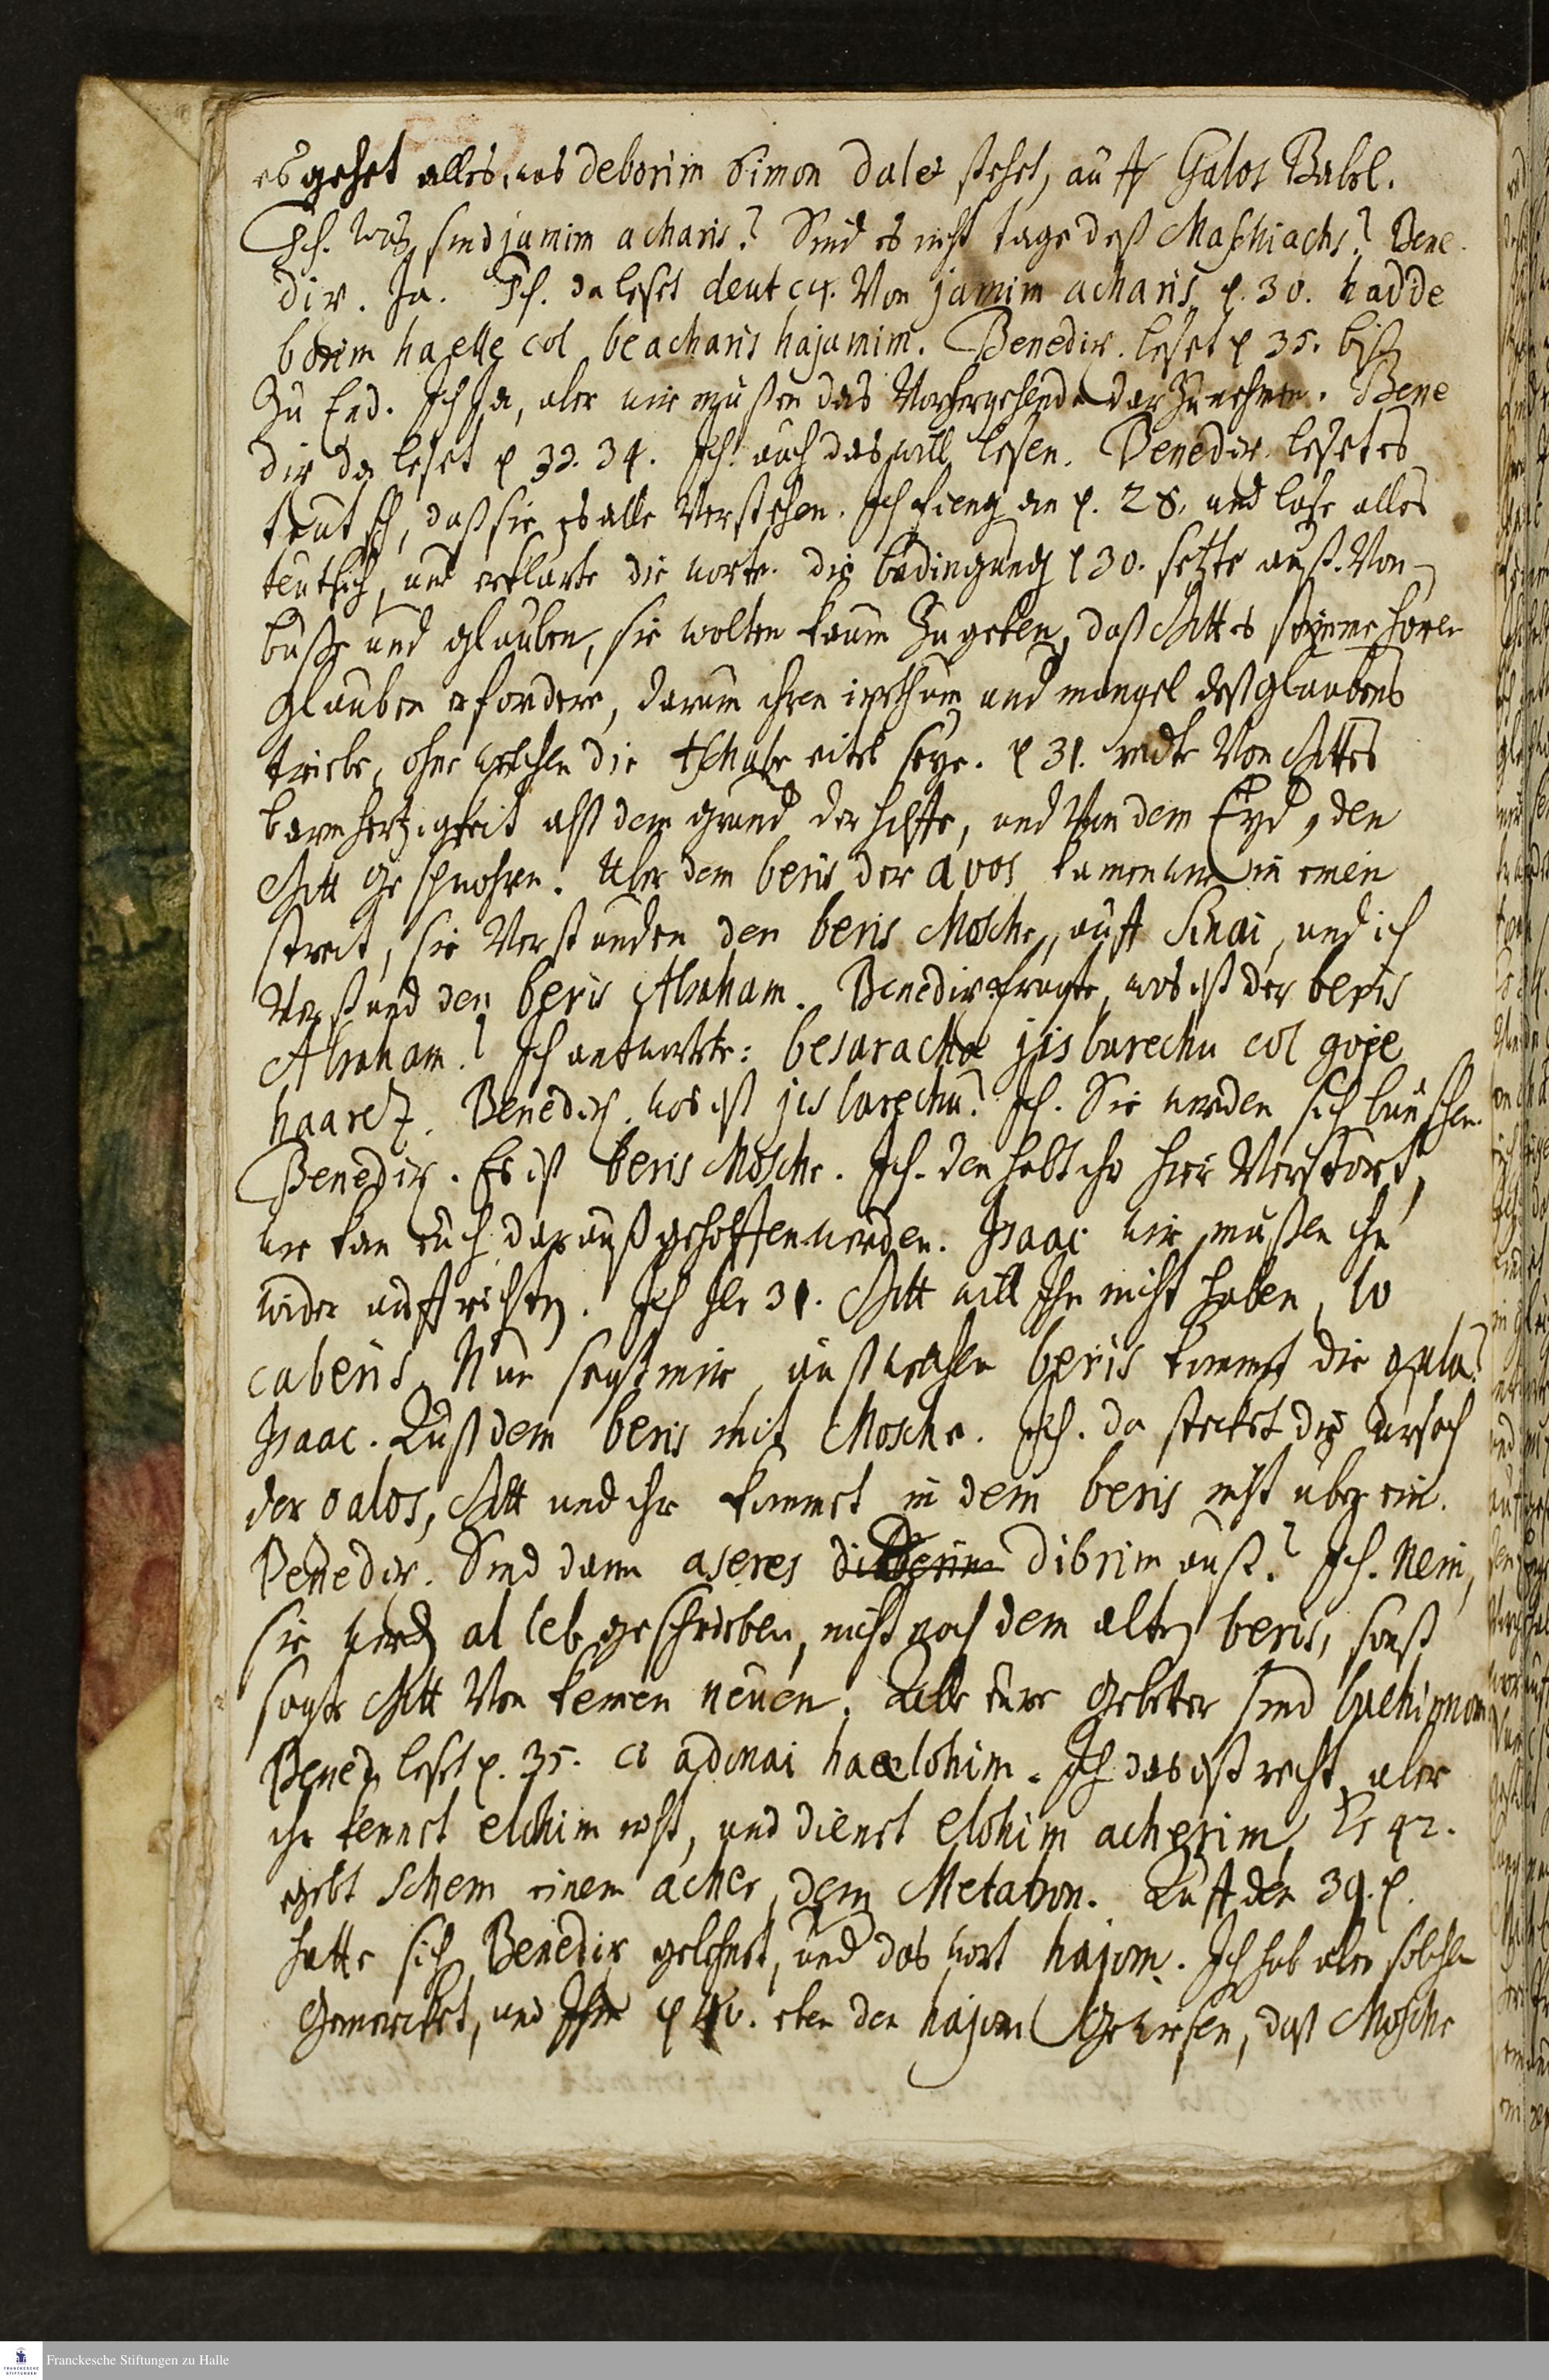 es gehet alles, was deborim Simon dalet stehet, auff Galos Babel.
Ich. was sind jamim acharis? Sind es nicht tage deß Maschiachs? Bene
dix. Ja. Ich. da leset deut c 4. Von jamim acharis p. 30. hadde
borim haelle col beacharis hajamim. Benedix. leset p 35. biß
zu End. Ich Ja, aber wir mußen das Vorhergehende darzu nehmen. Bene
dix da leset p 33. 34. Ich. auch das will lesen. Benedix. leset es
teutsch, daß sie es alle Verstehen. Ich fieng an p. 28. und lase alles
teutsch, und erklarte die worte. die bedingung p 30. setzte auß. Von
buße und glauben, sie wolten kaum zugeben, daß Gott es seyeme horen
glauben erfordere, darum ihren irrthum und mangel deß glaubens
triebe, ohne welchen die tschube eitel seye. p 31. redte Von Gottes
barmhertzigkeit alß dem grund der hilffe, und Von dem Eyd, den
Gott geschwohren. Uber dem beris der avos kamen wir in einen
streit, sie Verstunden den beris Mosche, auff Sinai, und ich
Verstund den beris Abraham. Benedix fragte, was ist der beris
Abraham? Ich antwortete: besaracha jisbarechu col goje
haaretz. Benedix. was ist jisbarechu? Ich. Sie werden sich
Benedix. Es ist beris Mosche. Ich. den habt ihr hier Verstort,
wie kan euch darauß geholffen werden. Isaac wir mußen ihn
wider auffrichten. Ich Jer 31. Gott will Ihn nicht haben, lo
caberis. Nun sagt mir, auß welchen beris kommt die gula?
Isaac. Auß dem beris mit Mosche. Ich. da stecket die ursach
der galos, Gott und ihr kommet in dem beris nicht uber ein.
Benedix. Sind dann aseres dibrim auß? Ich. Nein,
sie werden al leb geschrieben, nicht nach dem alten beris, sonst
sagte Gott Von keinen neuen. Alle eure Gebeter sind
Bened. leset p. 35. ci adonai haelohim. Ich das ist recht, aber
ihr kennet elohim nicht, und dienet elohim acherim, Es 42.
gebt Schem einem acher, dem Metatron. Auff den 39. p.
hatte sich Benedix gelehnet, und das wort hajom. Ich hab aber solches
Gemercket, und Ihm p 40. eben den hajom gewiesen, daß Mosche
Franckesche Stiftungen zu Halle